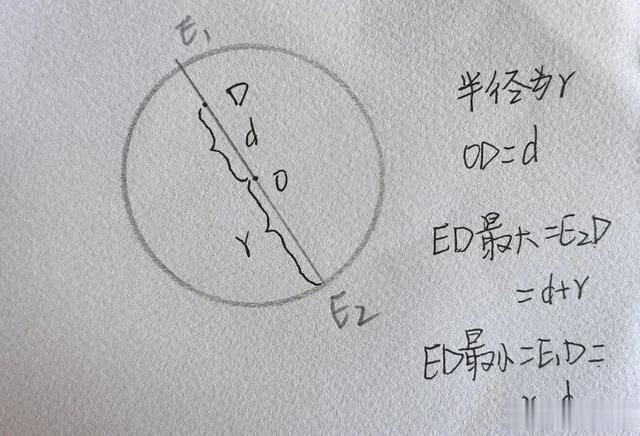 E₁
D
d
O
r
E₂
半径为r
OD=d
ED最大=E₂D
=d+r
ED最小=E₁D=